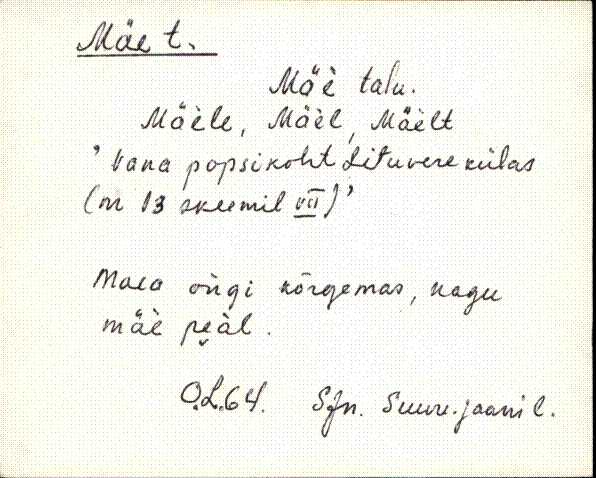 Mäe t.
Mäè talu.
Mäèle, Mäèl, Mäèlt
'Vana popsikoht Lituvere külas
(nr 13 skeemil VII)'
Maea oñgi kõrgemas, nagu
mäè peàl.
O.L.64. SJn. Suure-jaani l.